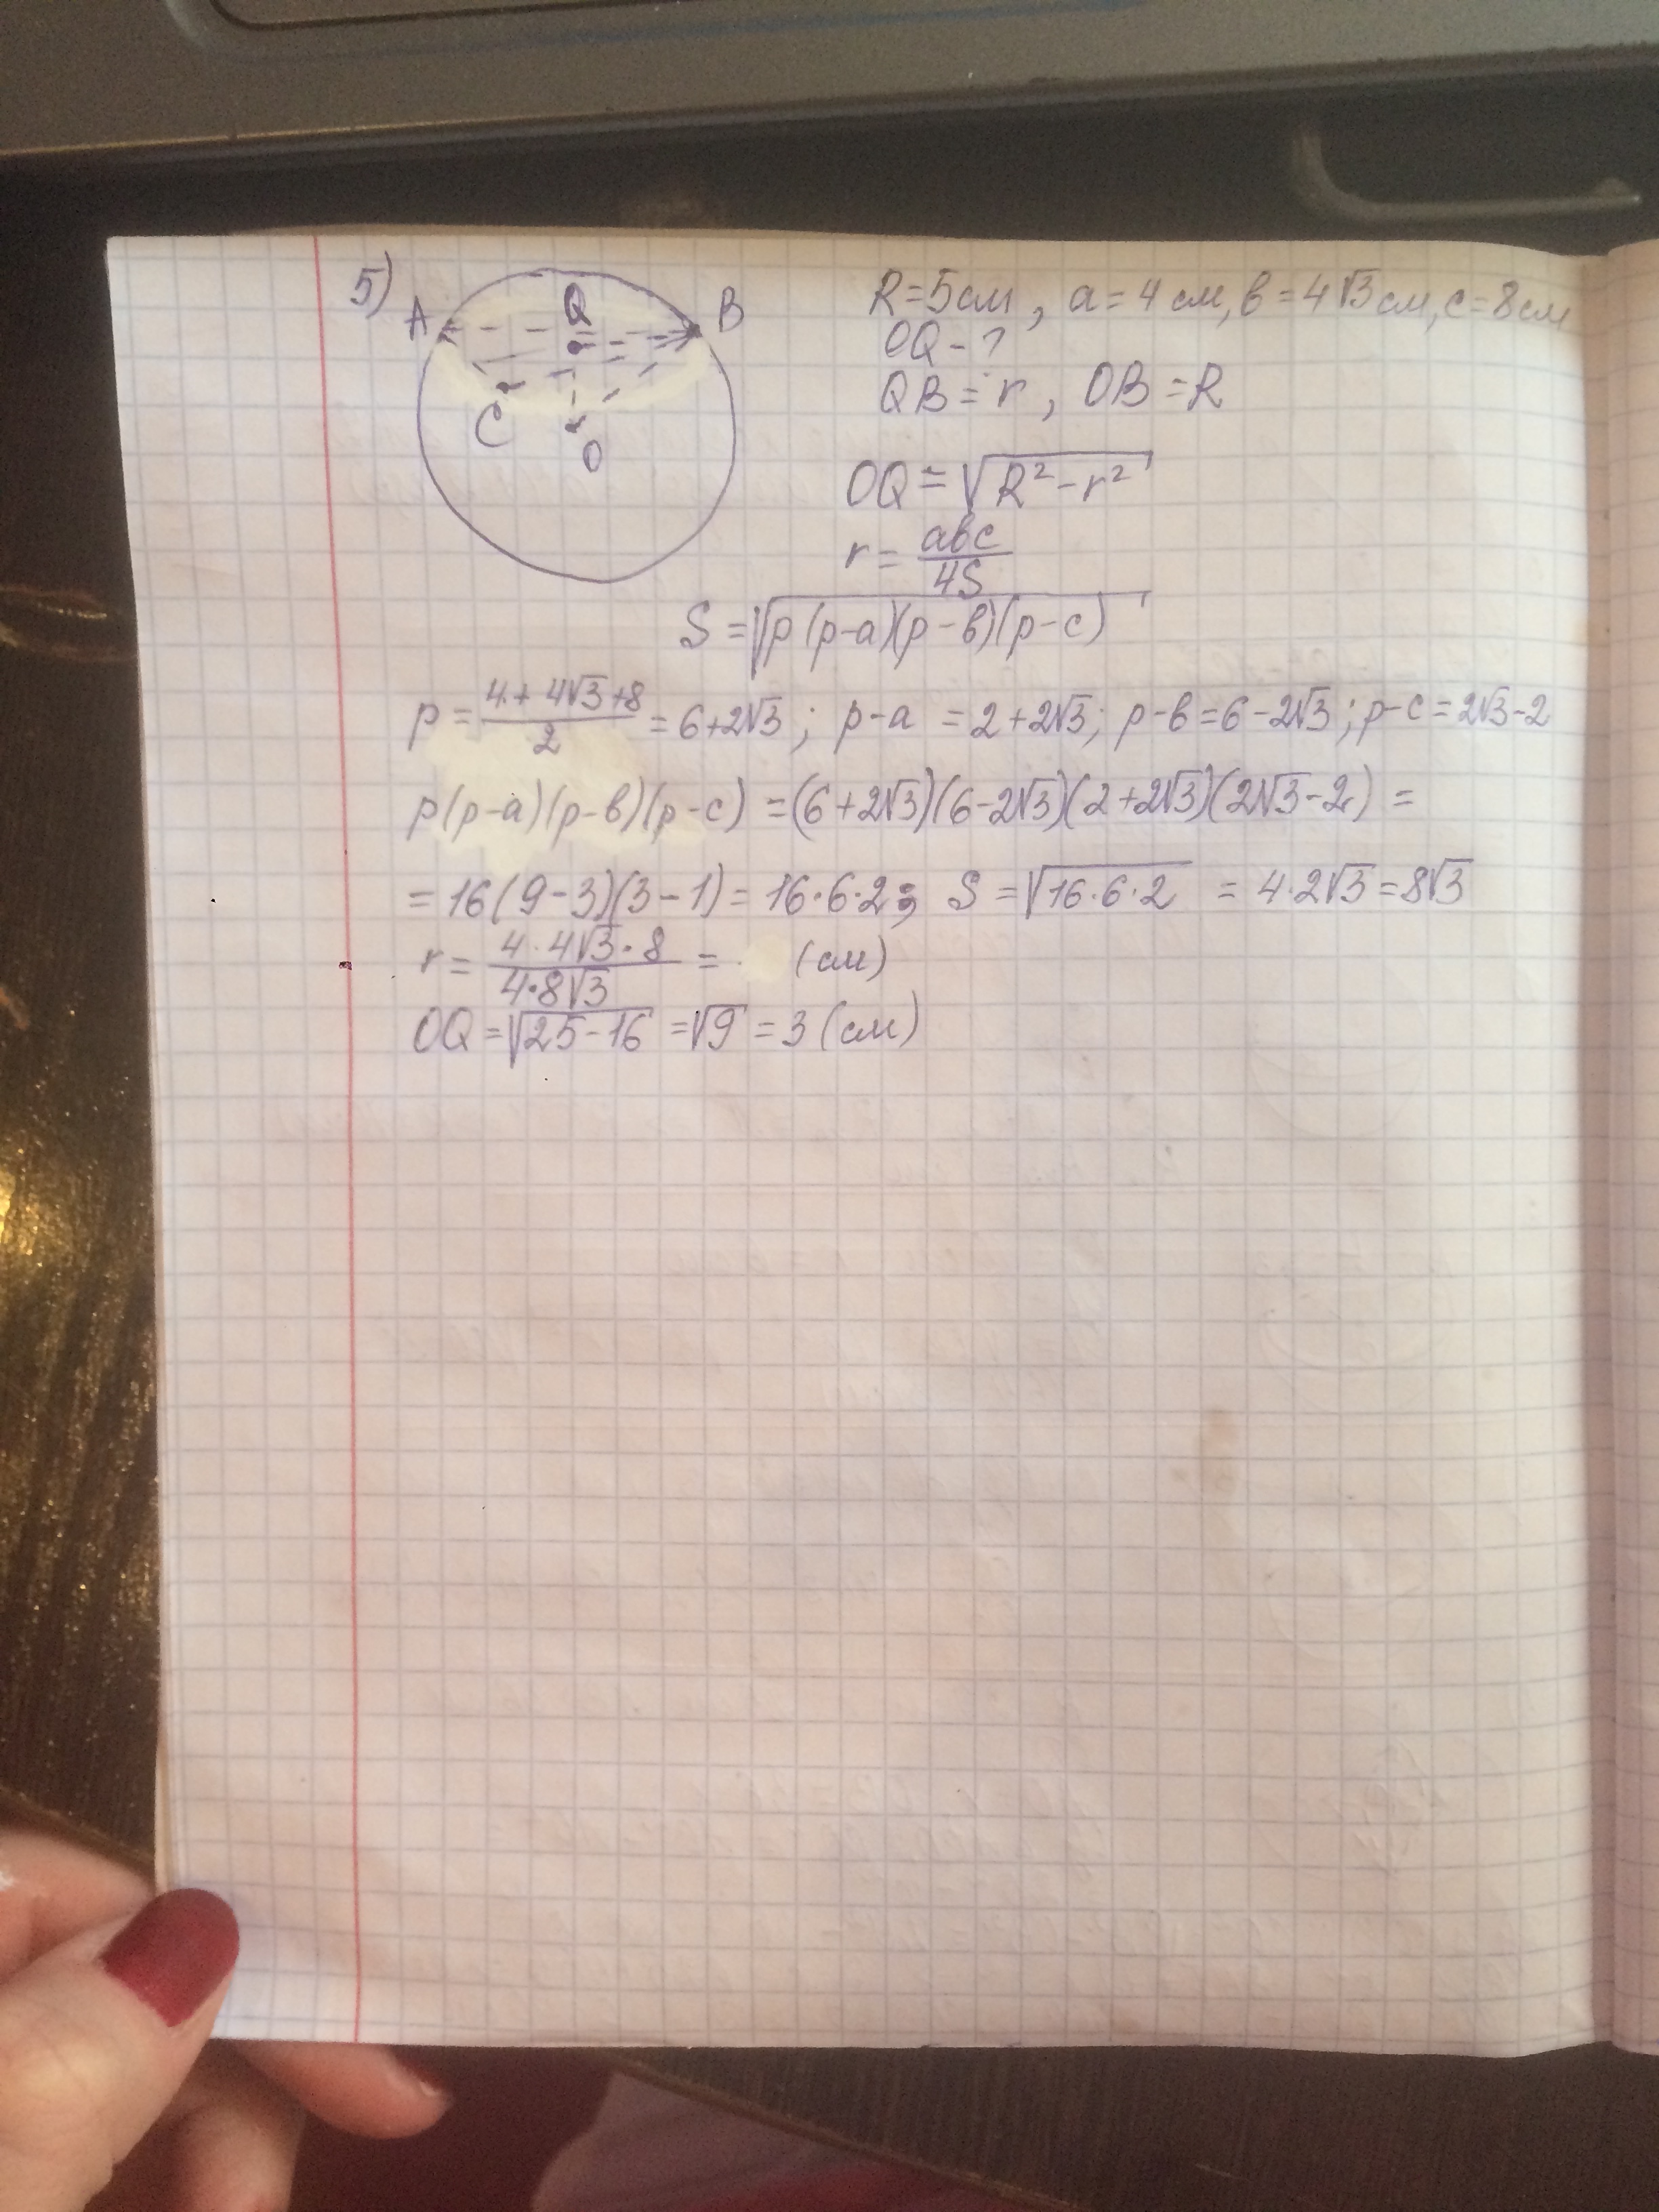 5)
A
Q
B
C
O
R=5см, a=4 см, в=4√3 см, c=8 см
OQ-?
QB=r, OB=R
OQ=√(R²-r²)
r=авс/4S
S=√(p(p-a)(p-в)(p-c))
p=(4+4√3+8)/2=6+2√3; p-a=2+2√3; p-в=6-2√3; p-c=2√3-2
p(p-a)(p-в)(p-c)=(6+2√3)(6-2√3)(2+2√3)(2√3-2)=
=16(9-3)(3-1)=16·6·2; S=√(16·6·2)=4·2√3=8√3
r=(4·4√3·8)/(4·8√3)= (см)
OQ=√(25-16)=√9=3(см)